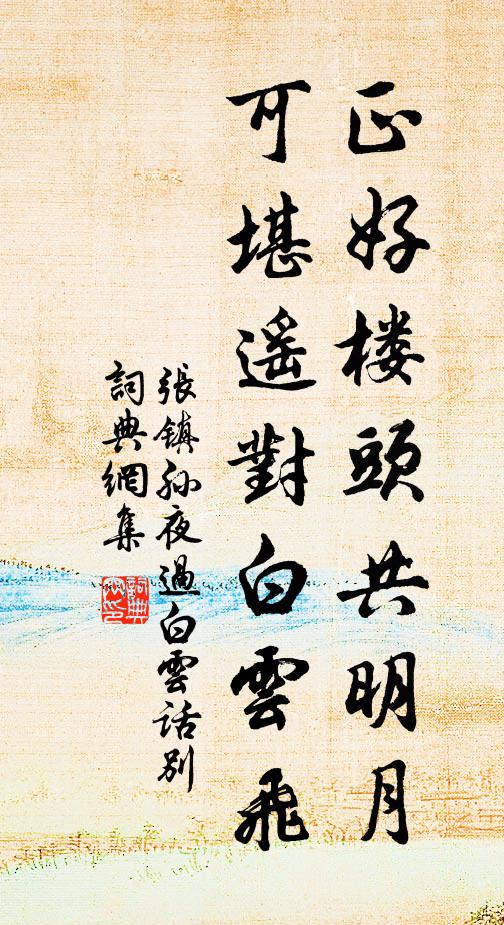 正好楼頭共明月
可堪遥對白雲飛
張鎮孫夜過白雲話别
詞典網集